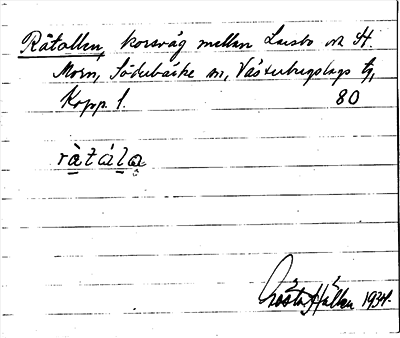 Råtallen, korsväg mellan Larsbo och St.
Morn, Söderbärke sn, Västerbergslags tg,
Kopp. l. 80
ràtála
Gösta Hallén 1934.